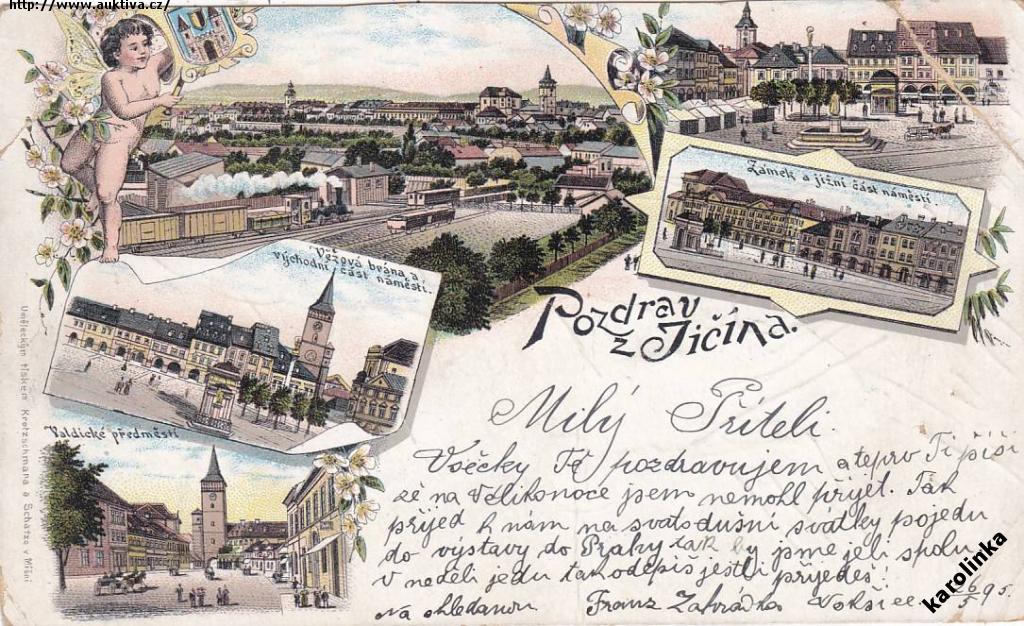 http://www.auktiva.cz/
Zámek a jižní část náměstí.
Věžová brána a
východní část náměstí.
Pozdrav
z Jičína.
Valdické předměstí
Uměleckým tiskem Krotzschmana a Schatze v Míšni
Milý Příteli.
Všecky Tě pozdravujem a teprv Ti píši
že na Velikonoce jsem nemohl přijet. Tak
přijed k nám na svatodušní svátky pojedu
do výstavy do Prahy tak by jsme jeli spolu
v neděli jedu tak odepis jestli přijedeš!
Na shledanou Franz Zahrádka Vokšice 6/5 95.
karolinka